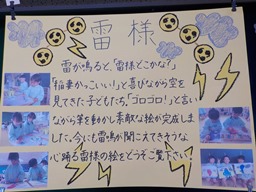 雷様
雷が鳴ると、「雷様どこかな？」
「稲妻かっこいい！」と喜びながら空を
見てきた子どもたち。「ゴロゴロ！」と言い
ながら筆を動かし素敵な絵が完成しま
した。今にも雷鳴が聞こえてきそうな
心踊る雷様の絵をどうぞご覧下さい！